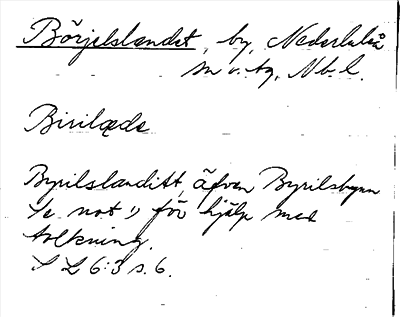 Börjelslandet, by, Nederluleå
sn o. tg, Nb. l.
Birilæde
Byrilslanditt, äfven Byrilsbynn
Se not 1) för hjälp med
tolkning.
S L 6:3 s. 6.